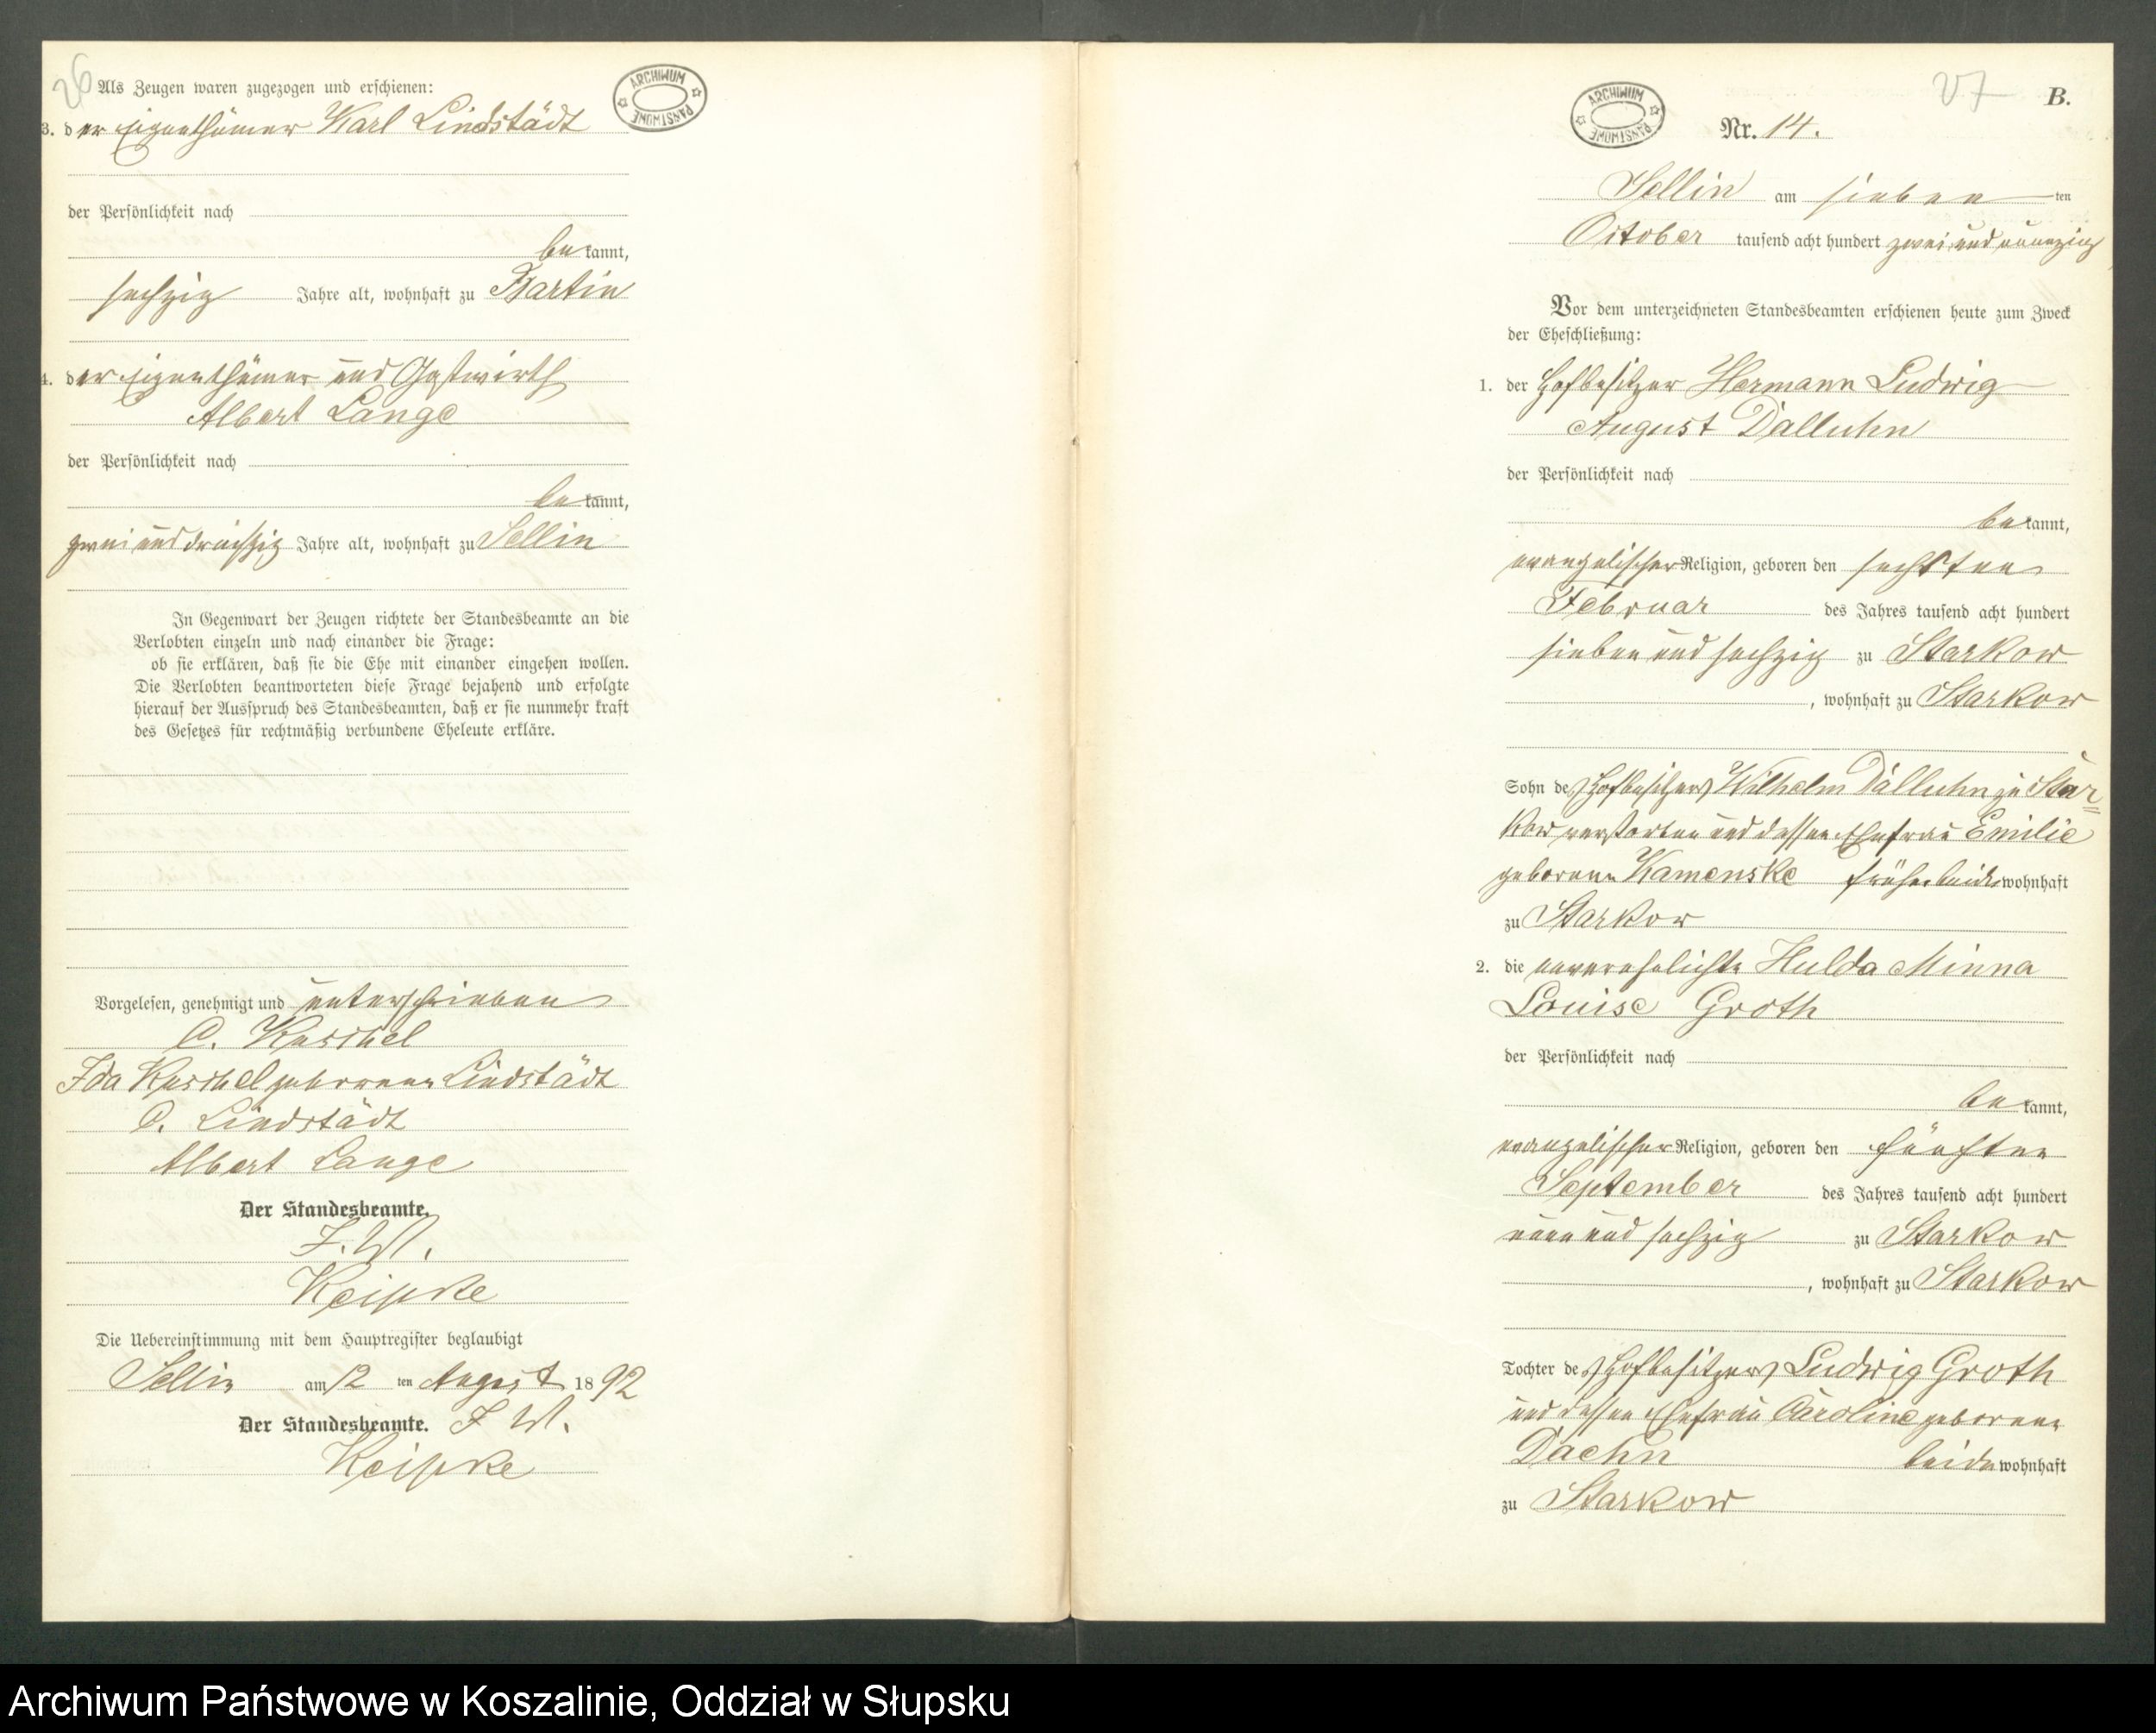 26
Als Zeugen waren zugezogen und erschienen:
ARCHIWUM PAŃSTWOWE
3. der Eigenthümer Karl Lindstädt
der Persönlichkeit nach
bekannt,
sechzig Jahre alt, wohnhaft zu Bartin
4. der Eigenthümer und Gastwirth
Albert Lange
der Persönlichkeit nach
bekannt,
zwei und dreißig Jahre alt, wohnhaft zu Sellin
In Gegenwart der Zeugen richtete der Standesbeamte an die
Verlobten einzeln und nach einander die Frage:
ob sie erklären, daß sie die Ehe mit einander eingehen wollen.
Die Verlobten beantworteten diese Frage bejahend und erfolgte
hierauf der Ausspruch des Standesbeamten, daß er sie nunmehr kraft
des Gesetzes für rechtmäßig verbundene Eheleute erkläre.
Vorgelesen, genehmigt und unterschrieben
C. Kuschel
Ida Kuschel geborene Lindstädt
C. Lindstädt
Albert Lange
Der Standesbeamte.
J. W.
Keipke
Die Uebereinstimmung mit dem Hauptregister beglaubigt
Sellin am 12 ten August 1892
Der Standesbeamte. J. W.
Keipke
ARCHIWUM PAŃSTWOWE
27
B.
Nr. 14.
Sellin am sieben ten
October tausend acht hundert zwei und neunzig
Vor dem unterzeichneten Standesbeamten erschienen heute zum Zweck
der Eheschließung:
1. der Hofbesitzer Hermann Ludwig
August Dalluhn
der Persönlichkeit nach
bekannt,
evangelischer Religion, geboren den sechsten
Februar des Jahres tausend acht hundert
sieben und sechzig zu Starkow
, wohnhaft zu Starkow
Sohn des Hofbesitzers Wilhelm Dalluhn zu Star=
kow verstorben und dessen Ehefrau Emilie
geborene Kamenske früher beide wohnhaft
zu Starkow
2. die unverehelichte Hulda Minna
Louise Groth
der Persönlichkeit nach
bekannt,
evangelischer Religion, geboren den fünften
September des Jahres tausend acht hundert
neun und sechzig zu Starkow
, wohnhaft zu Starkow
Tochter des Hofbesitzers Ludwig Groth
und dessen Ehefrau Caroline geborene
Daehn beide wohnhaft
zu Starkow
Archiwum Państwowe w Koszalinie, Oddział w Słupsku